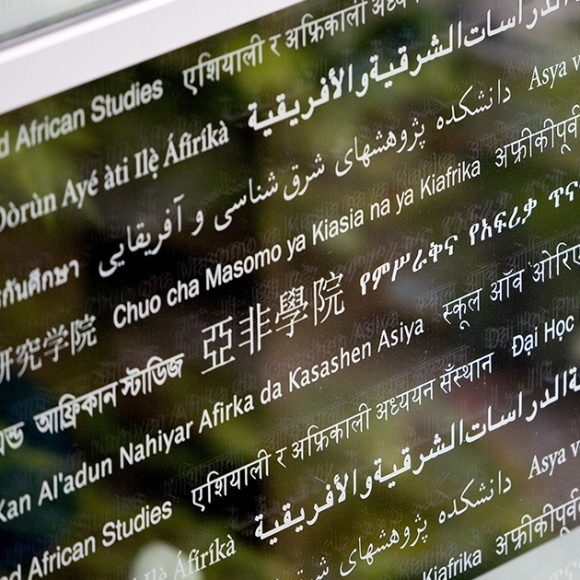 African Studies एशियाली र अफ्रिकाली अध्ययन
Dòrùn Ayé àti Ilẹ̀ Áfíríkà الدراسات الشرقية والأفريقية
दانشکده پژوهشهای شرق شناسی و آفریقایی Asya
Chuo cha Masomo ya Kiasia na ya Kiafrika अफ्रीकीपूर्व
研究学院 亞非學院 የምሥራቅና የአፍሪቃ ጥና
আফ্রিকান স্টাডিজ
Kan Al'adun Nahiyar Afirka da Kasashen Asiya स्कूल ऑव ओरिए
एशियाली र अफ्रिकाली अध्ययन सँस्थान Đại Học
African Studies الدراسات الشرقية والأفريقية
Ilẹ̀ Áfíríkà دانشکده پژوهشهای Asya
Kiafrika अफ्रीकीपूर्व